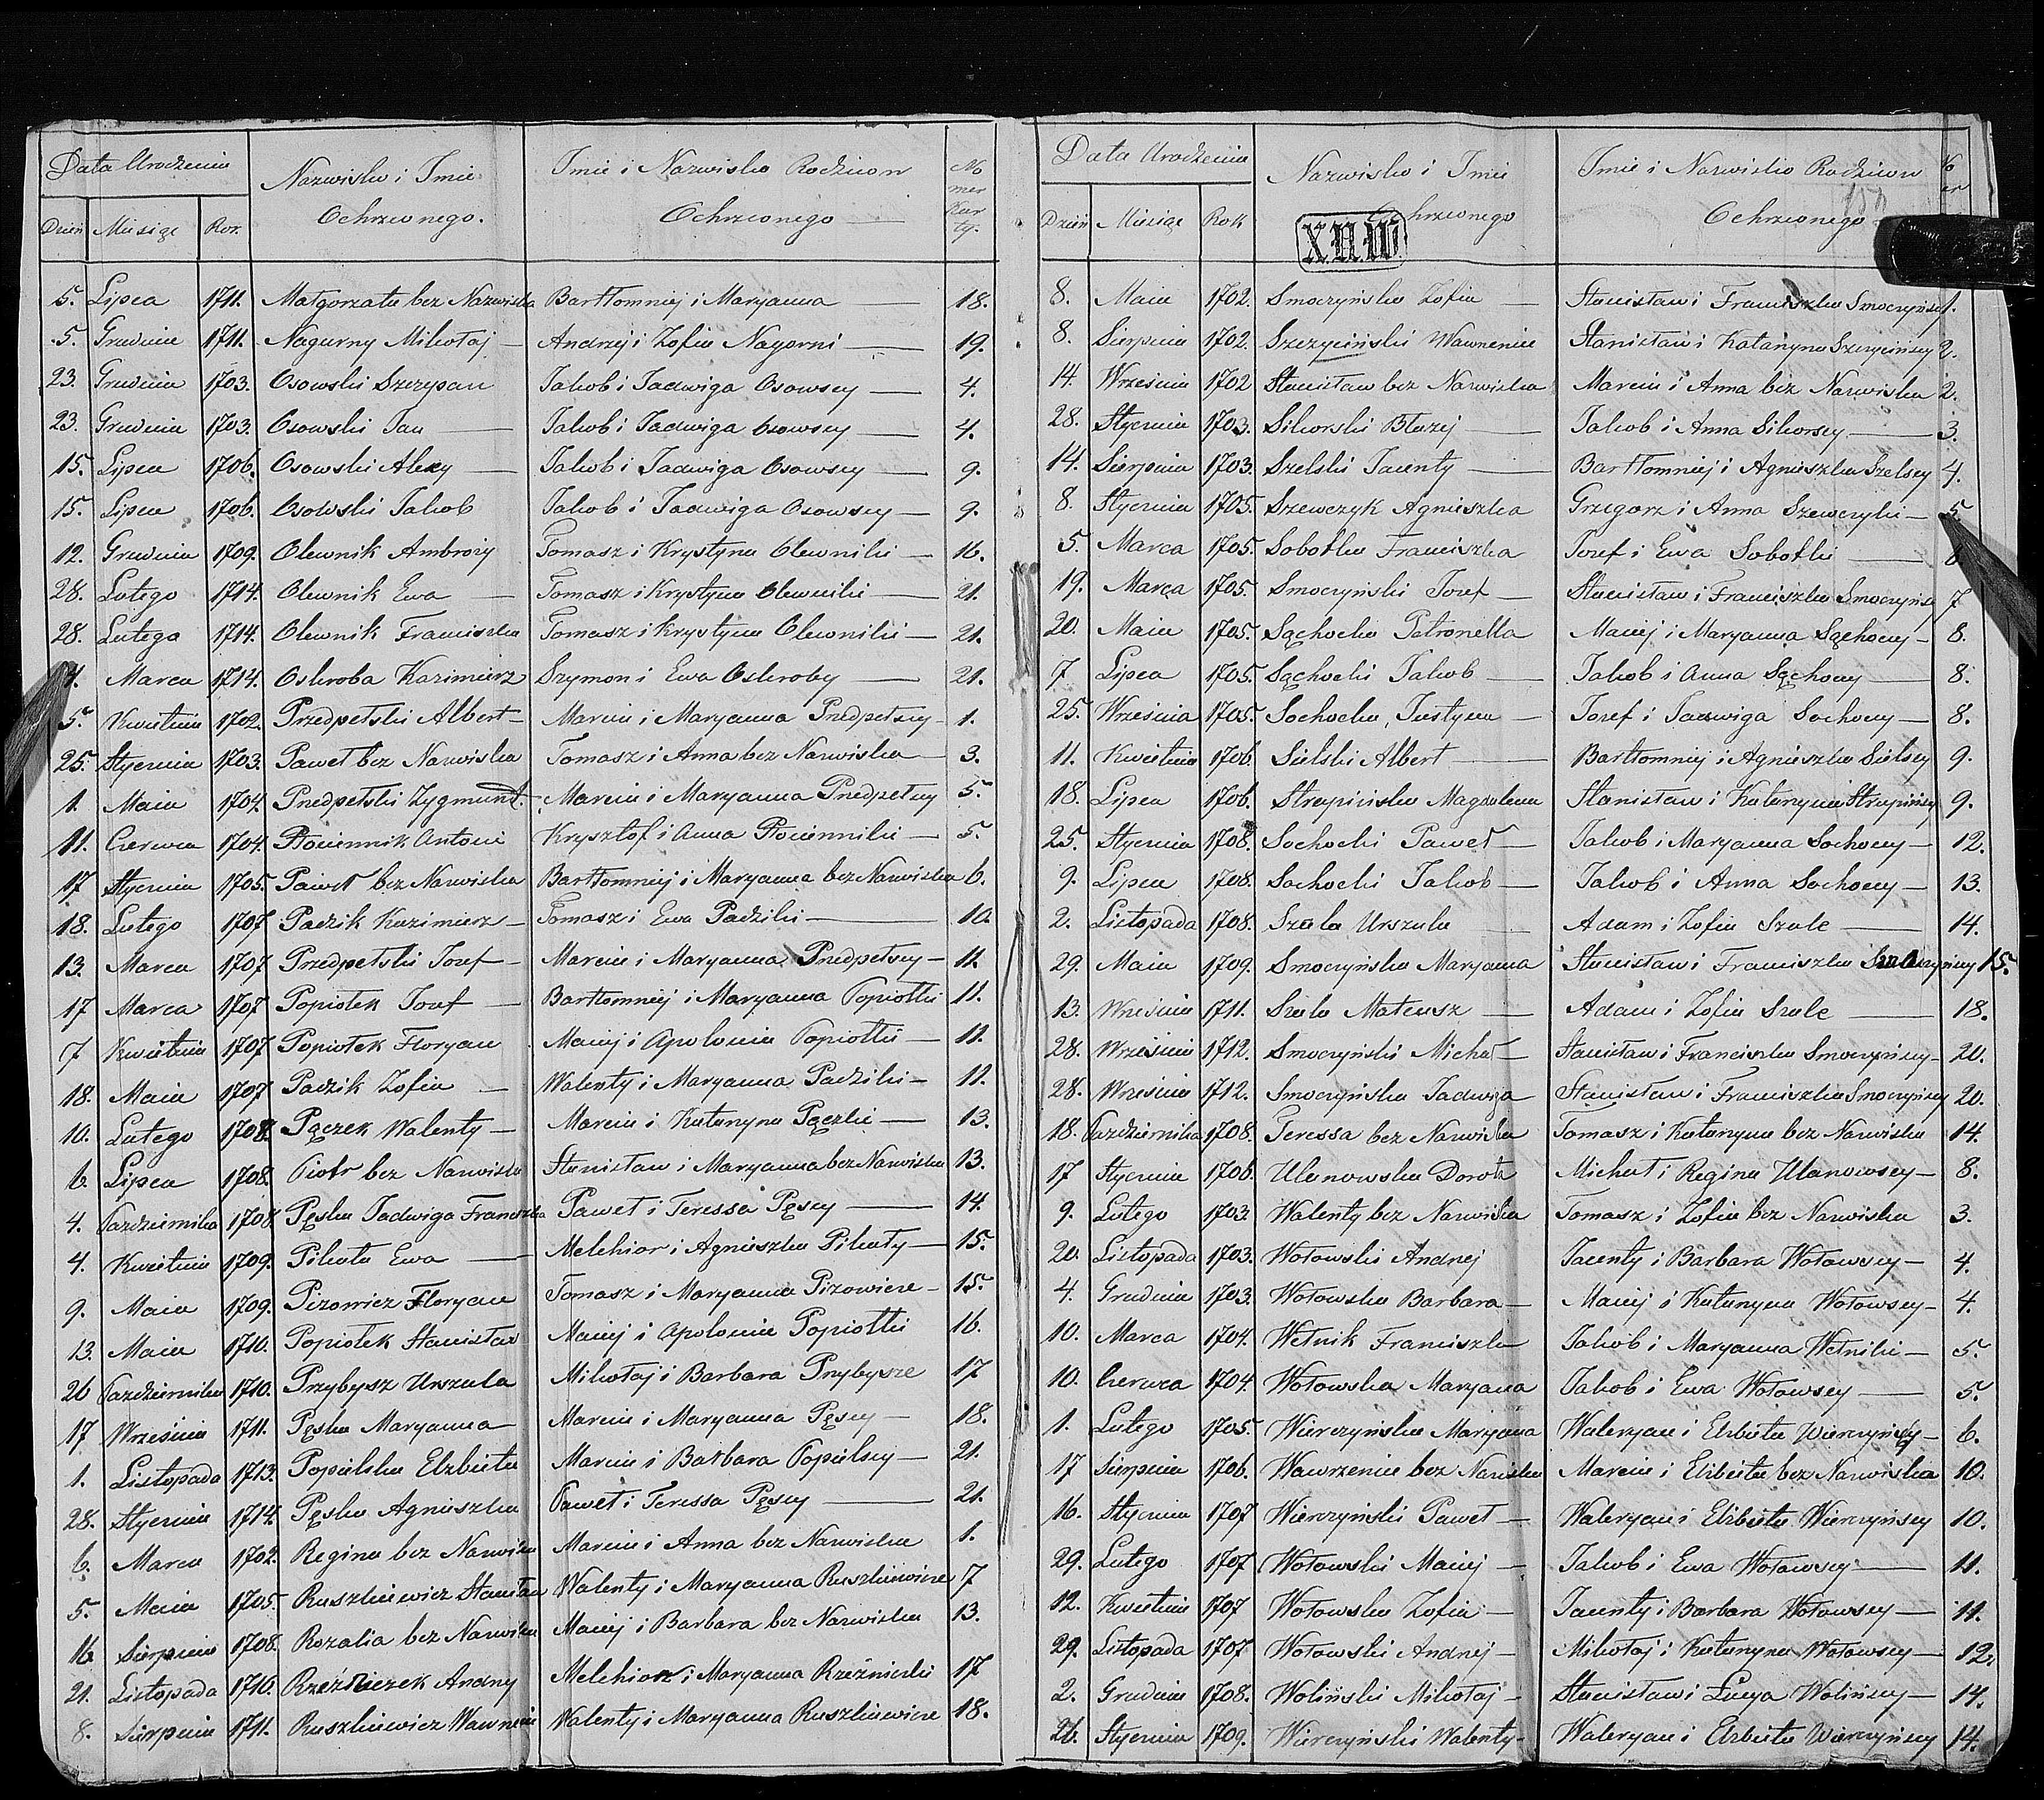 Data Urodzenia
Nazwisko i Imie Ochrzconego.
Imie i Nazwisko Rodzicow Ochrzconego
No mer Kar ty.
Dzień Miesiąc Rok
5. Lipca 1711. Małgorzata bez Nazwiska Bartłomniej i Maryanna 18.
5. Grudnia 1711. Nagurny Mikołaj Andrzej i Zofia Nagorni 19.
23. Grudnia 1703. Osowski Szczepan Jakob i Jadwiga Osowscy 4.
23. Grudnia 1703. Osowski Jan Jakob i Jadwiga Osowscy 4.
15. Lipca 1706. Osowski Alexy Jakob i Jadwiga Osowscy 9.
15. Lipca 1706. Osowski Jakob Jakob i Jadwiga Osowscy 9.
12. Grudnia 1709. Olewnik Ambroży Tomasz i Krystyna Olewniki 16.
28. Lutego 1714. Olewnik Ewa Tomasz i Krystyna Olewniki 21.
28. Lutego 1714. Olewnik Franciszka Tomasz i Krystyna Olewniki 21.
4. Marca 1714. Oskroba Kazimierz Szymon i Ewa Oskroby 21.
5. Kwietnia 1702. Przedpełski Albert Marcin i Maryanna Przedpełscy 1.
25. Stycznia 1703. Paweł bez Nazwiska Tomasz i Anna bez Nazwiska 3.
1. Maia 1704. Przedpełski Zygmunt. Marcin i Maryanna Przedpełscy 5.
11. Czerwca 1704. Płóciennik Antoni Krysztof i Anna Płócienniki 5.
17 Stycznia 1705. Paweł bez Nazwiska Bartłomniej i Maryanna bez Nazwiska 6.
18. Lutego 1707. Padzik Kazimierz Tomasz i Ewa Padziki 10.
13. Marca 1707 Przedpełski Jozef Marcin i Maryanna Przedpełscy 11.
17 Marca 1707 Popiołek Jozef Bartłomniej i Maryanna Popiołki 11.
7 Kwietnia 1707 Popiołek Floryan Maciej i Apolonia Popiołki 11.
18. Maia 1707 Padzik Zofia Walenty i Maryanna Padziki 11.
10. Lutego 1708. Pączek Walenty Marcin i Katarzyna Pączki 13.
6. Lipca 1708. Piotr bez Nazwiska Stanisław i Maryanna bez Nazwiska 13.
4. Pazdziernika 1708. Pęska Jadwiga Franciszka Paweł i Teressa Pęscy 14.
4. Kwietnia 1709. Pikuta Ewa Melchior i Agnieszka Pikuty 15.
9. Maia 1709. Pizowicz Floryan Tomasz i Maryanna Pizowicze 15.
13. Maia 1710. Popiołek Stanisław Maciej i Apolonia Popiołki 16.
26 Pazdziernika 1710. Przybysz Urszula Mikołaj i Barbara Przybysze 17
17 Września 1711. Pęska Maryanna Marcin i Maryanna Pęscy 18.
1. Listopada 1713. Popielska Elzbieta Marcin i Barbara Popielscy 21.
28. Stycznia 1714. Pęska Agnieszka Paweł i Teressa Pęscy 21.
6. Marca 1702. Regina bez Nazwiska Marcin i Anna bez Nazwiska 1.
5. Maia 1705. Ruszkiewicz Stanisław Walenty i Maryanna Ruszkiewicze 7
16 Sierpnia 1708. Rozalia bez Nazwiska Maciej i Barbara bez Nazwiska 13.
21. Listopada 1710. Rzeźniczek Andrzy Melchior i Maryanna Rzeźniczki 17
8. Sierpnia 1711. Ruszkiewicz Wawrzeniec Walenty i Maryanna Ruszkiewicze 18.
Data Urodzenia
Nazwisko i Imie Ochrzconego
Imie i Nazwisko Rodzicow Ochrzconego
Dzień Miesiąc Rok
XIIW
8. Maia 1702. Smoczyńska Zofia Stanisław i Franciszka Smoczyńscy 1.
8. Sierpnia 1702. Szczyciński Wawrzeniec Stanisław i Katarzyna Szczycińscy 2.
14. Września 1702 Stanisław bez Nazwiska Marcin i Anna bez Nazwiska 2.
28. Stycznia 1703. Sikorski Błażej Jakob i Anna Sikorscy 3.
14. Sierpnia 1703. Szelski Jacenty Bartłomniej i Agnieszka Szelscy 4.
8. Stycznia 1705. Szewczyk Agnieszka Grzegorz i Anna Szewczyki 5
5. Marca 1705. Sobotka Franciszka Jozef i Ewa Sobotki 6
19. Marca 1705. Smoczyński Jozef Stanisław i Franciszka Smoczyńscy 7
20. Maia 1705. Sąchocka Petronella Maciej i Maryanna Sąchoccy 8.
7 Lipca 1705. Sąchocki Jakob Jakob i Anna Sąchoccy 8.
25. Września 1705. Sochocka Justyna Jozef i Jadwiga Sochoccy 8.
11. Kwietnia 1706. Sielski Albert Bartłomniej i Agnieszka Sielscy 9.
18. Lipca 1706. Strupińska Magdalena Stanisław i Katarzyna Strupińscy 9.
25. Stycznia 1708. Sochocki Paweł Jakob i Maryanna Sochoccy 12.
9. Lipca 1708. Sochocki Jakob Jakob i Anna Sochoccy 13.
2. Listopada 1708. Szula Urszula Adam i Zofia Szule 14.
29. Maia 1709. Smoczyńska Maryanna Stanisław i Franciszka Smoczyńscy 15.
13. Września 1711. Szula Mateusz Adam i Zofia Szule 18.
28. Września 1712. Smoczyński Michał Stanisław i Franciszka Smoczyńscy 20.
28. Września 1712. Smoczyńska Jadwiga Stanisław i Franciszka Smoczyńscy 20.
18. Pazdziernika 1708. Teressa bez Nazwiska Tomasz i Katarzyna bez Nazwiska 14.
17 Stycznia 1706. Ulanowska Dorota Michał i Regina Ulanowscy 8.
9. Lutego 1703. Walenty bez Nazwiska Tomasz i Zofia bez Nazwiska 3.
20. Listopada 1703. Wołowski Andrzej Jacenty i Barbara Wołowscy 4.
4. Grudnia 1703. Wołowska Barbara Maciej i Katarzyna Wołowscy 4.
10. Marca 1704. Wełnik Franciszka Jakob i Maryanna Wełniki 5.
10. Czerwca 1704. Wołowska Maryana Jakob i Ewa Wołowscy 5.
1. Lutego 1705. Wierczyńska Maryana Waleryan i Elzbieta Wierczyńscy 6.
17 Sierpnia 1706. Wawrzeniec bez Nazwiska Marcin i Elzbieta bez Nazwiska 10.
16. Stycznia 1707 Wierczyński Paweł Waleryan i Elzbieta Wierczyńscy 10.
29. Lutego 1707 Wołowski Maciej Jakob i Ewa Wołowscy 11.
12. Kwietnia 1707 Wołowska Zofia Jacenty i Barbara Wołowscy 11.
29. Listopada 1707 Wołowski Andrzej Mikołaj i Katarzyna Wołowscy 12.
2. Grudnia 1708. Woliński Mikołaj Stanisław i Łucya Wolińscy 14.
26. Stycznia 1709. Wierczyński Walenty Waleryan i Elzbieta Wierczyńscy 14.